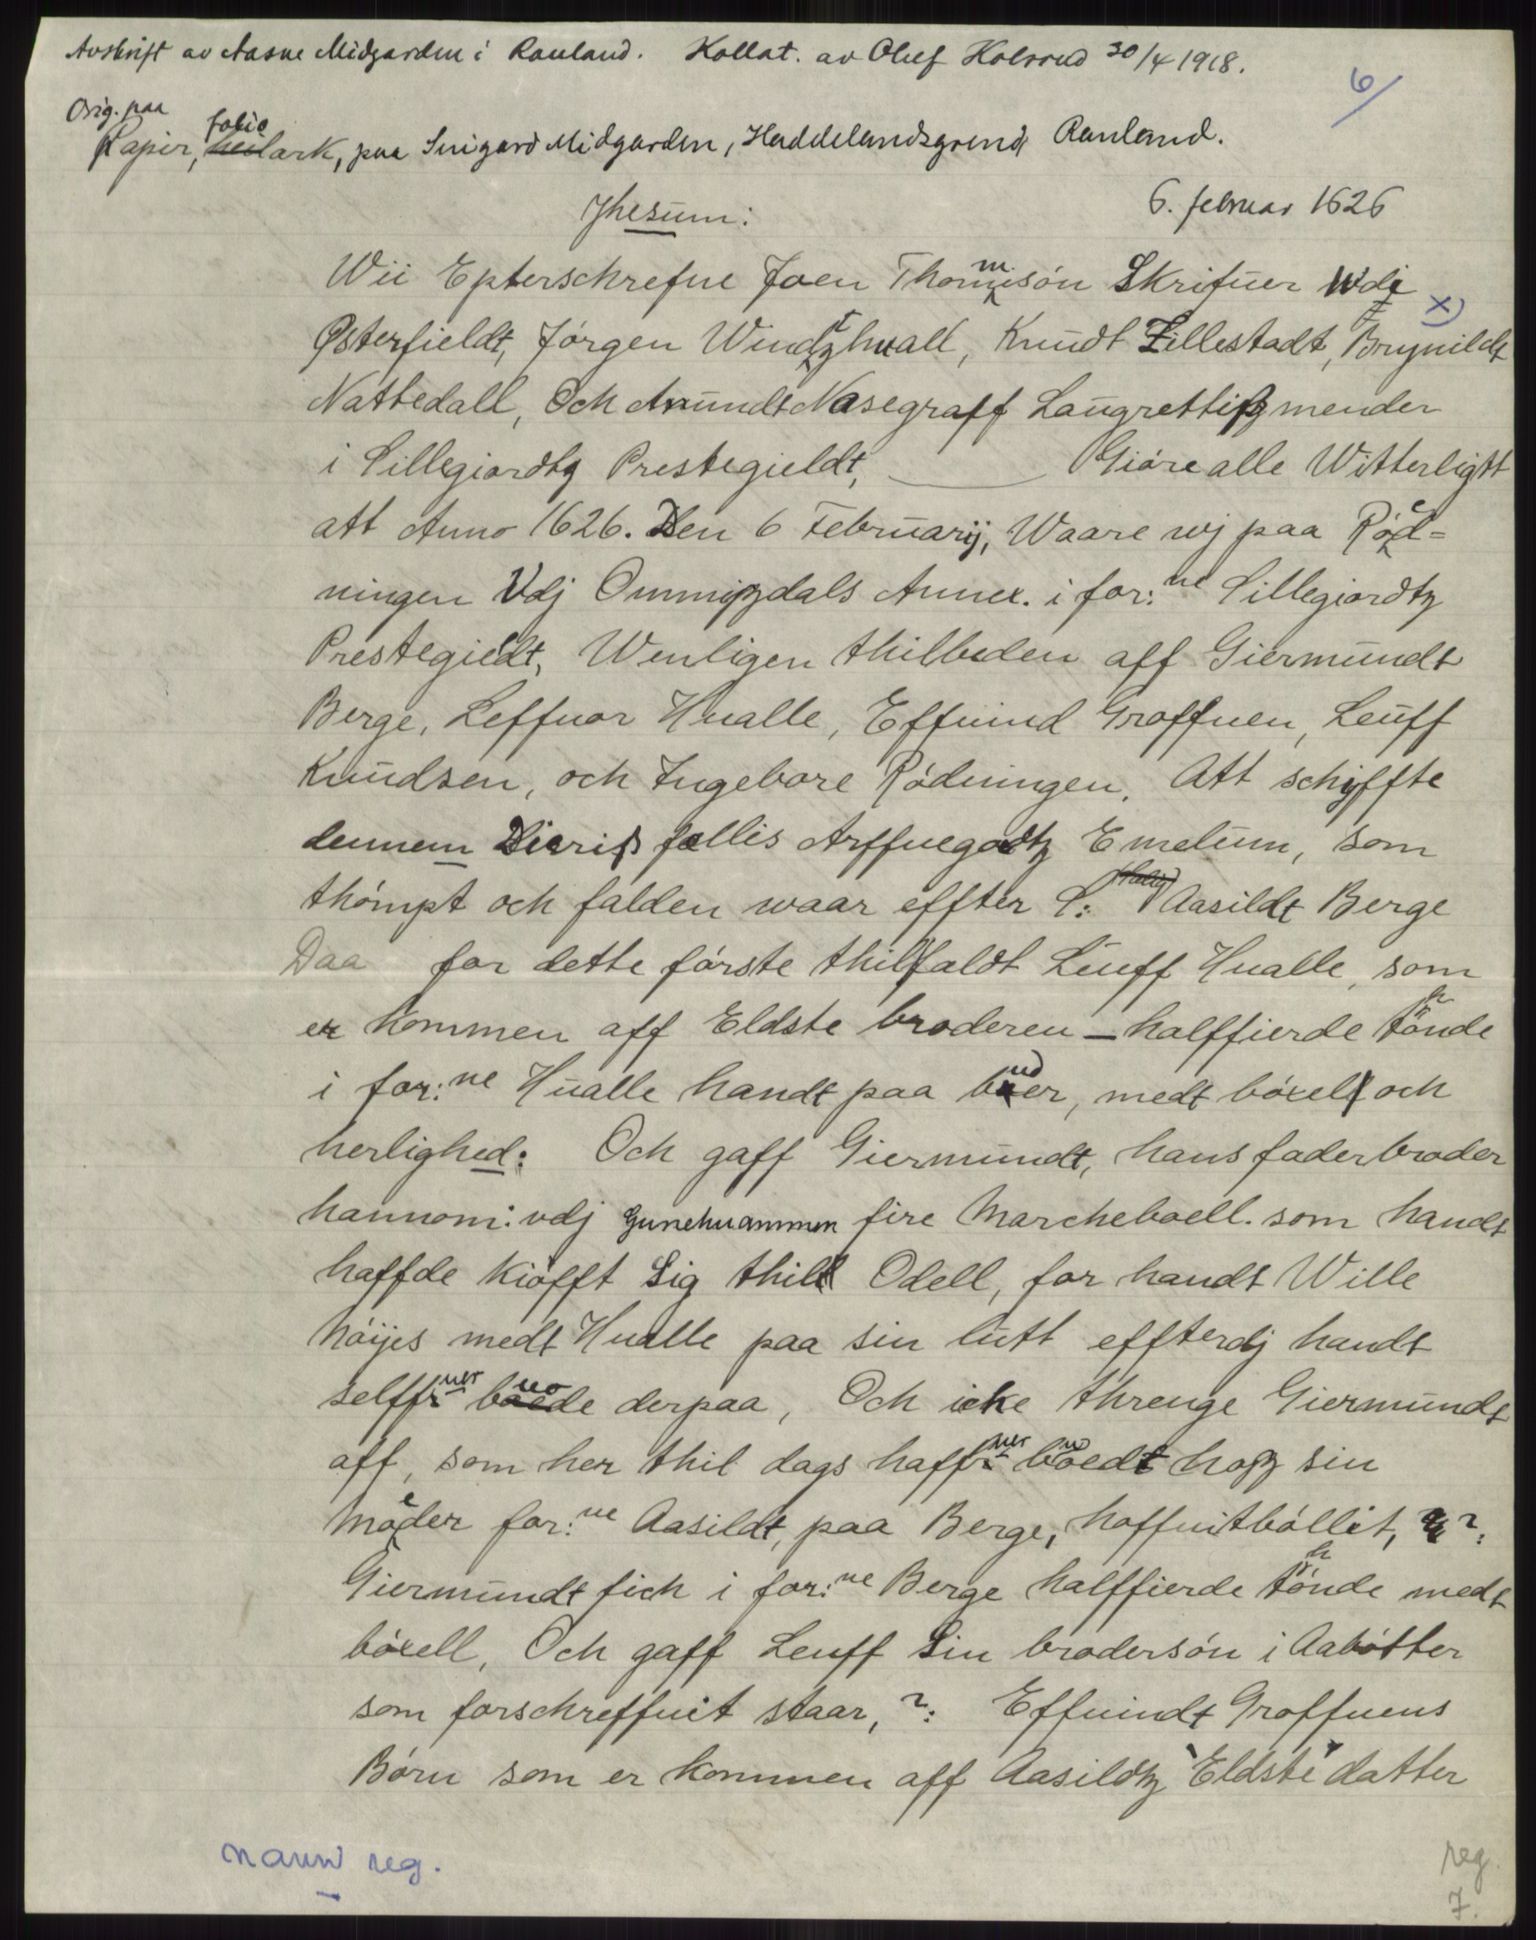 Avskrift av Aasne Midgarden i Rauland. Kollat. av Oluf Kolsrud 30/4 1918.
6/
Orig. paa
Papir, folio, paa Suigard Midgarden, Haddelandsgrend, Rauland.
Jhesum:
6. februar 1626
Wii Epterschrefne Joen Thommisön Skrifuer Wdi
Østerfieldt, Jörgen Windtzhuall, Knudt Lillestadt, Brynildt x)
Nattedall, Och Amundt Nasegraff Laugrettiß mender
i Lillegiordtz Prestegieldt, Giöre alle Witterligtt
att Anno 1626. Den 6 Februarij, Waare wj paa Röed=
ningen Vdj Ommißdals Annex. i for:ne Lillegiordtz
Prestegieldt, Wenligen thilbeden aff Giermundt
Berge, Leffuor Hualle, Effuind Groffuen, Leuff
Knudsen, och Ingebore Rödningen. Att schyffte
dennem Dieriß fellis Arffuegodtz Emelum, som
thömpt och falden waar effter S: Aasildt Berge
Daa for dette förste thilfaldt Leuff Hualle, som
er kommen aff Eldste broderen – halffierde thönde
i for:ne Hualle handt paa buder, medt böxell och
herlighed: Och gaff Giermundt, hans faderbroder
hannom: vdj Gunehuammen fire Marcheboell. som handt
haffde kiöfft Sig thill Odell, for handt Wille
Nöijes medt Hualle paa sin lutt effterdj handt
selffuer buode derpaa, Och icke threnge Giermundt
aff, som her thil dags haffuer buoedt hoß sin
Moeder for:ne Aasildt, paa Berge, hoffuitböllit, ?:
Giermundt fich i for:ne Berge halffierde thönde medt
böxell, Och gaff Leuff Sin brodersön i Aabötter
som forschreffuit staar, ?: Effuindt Groffuens
Börn som er kommen aff Aasildtz Eldste datter
navn reg.
reg.
7.